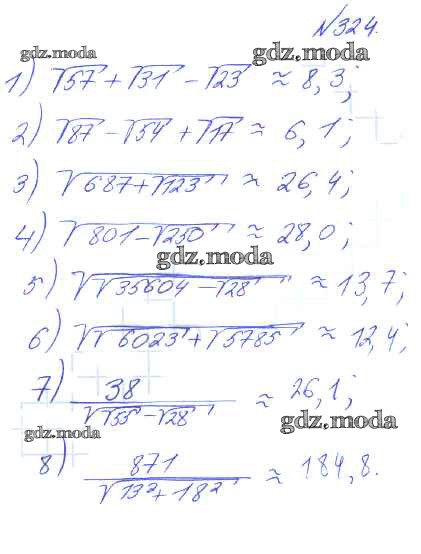 №324.
gdz.moda gdz.moda
1) √57 + √31 - √23 ≈ 8,3;
2) √87 - √54 + √17 ≈ 6,1;
3) √(687 + √123) ≈ 26,4;
4) √(801 - √250) ≈ 28,0;
gdz.moda
5) √(√35604 - √28) ≈ 13,7;
6) √(√6023 + √5785) ≈ 12,4;
7) 38 / √(√55 - √28) ≈ 26,1;
gdz.moda gdz.moda
8) 871 / √(13² + 18²) ≈ 184,8.